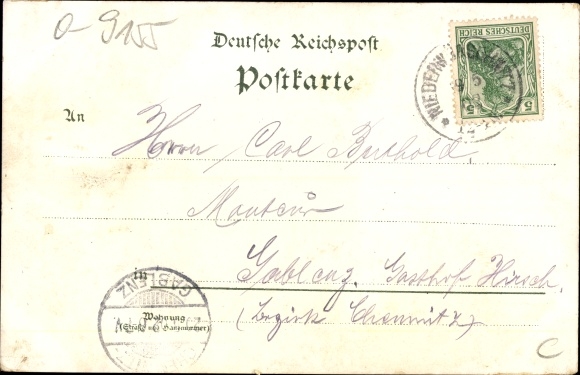 0-9155
Deutsche Reichspost
Postkarte
DEUTSCHES REICH
5 5
An
Herrn Carl Berthold
Monteur
in Gablenz. Gasthof Hirsch.
GABLENZ
Wohnung
(Straße und Hausnummer)
(Bezirk Chemnitz)
C